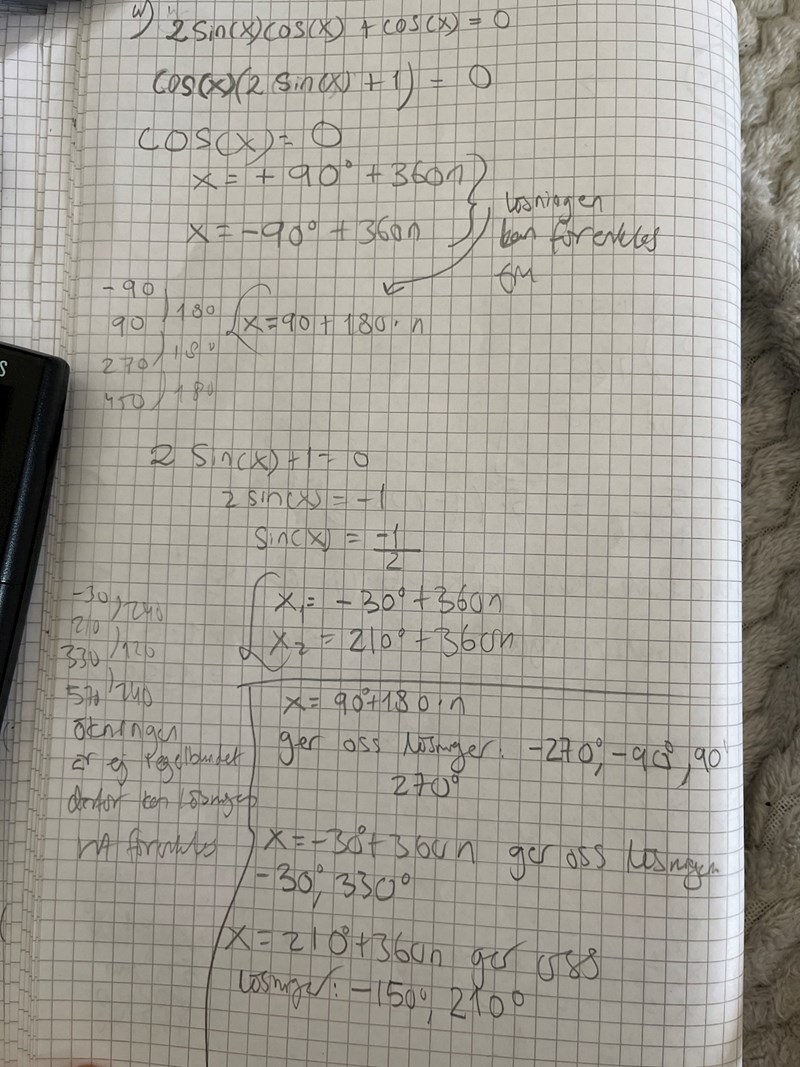 2 sin(x)cos(x) + cos(x) = 0
cos(x)(2 sin(x) + 1) = 0
cos(x) = 0
x = + 90° + 360n
x = -90° + 360n
lösningen
kan förenklas
-90
90
270
450
180
180
180
x = 90 + 180 · n
2 sin(x) + 1 = 0
2 sin(x) = -1
sin(x) = -1/2
x₁ = -30° + 360n
x₂ = 210° + 360n
-30
210
330
570
240
120
240
ökningen
är ej regelbundet
därför kan lösningen
förenklas
x = 90° + 180 · n
ger oss lösningar: -270°, -90°, 90°
270°
x = -30° + 360n ger oss lösningen
-30°, 330°
x = 210° + 360n ger oss
lösningar: -150°, 210°